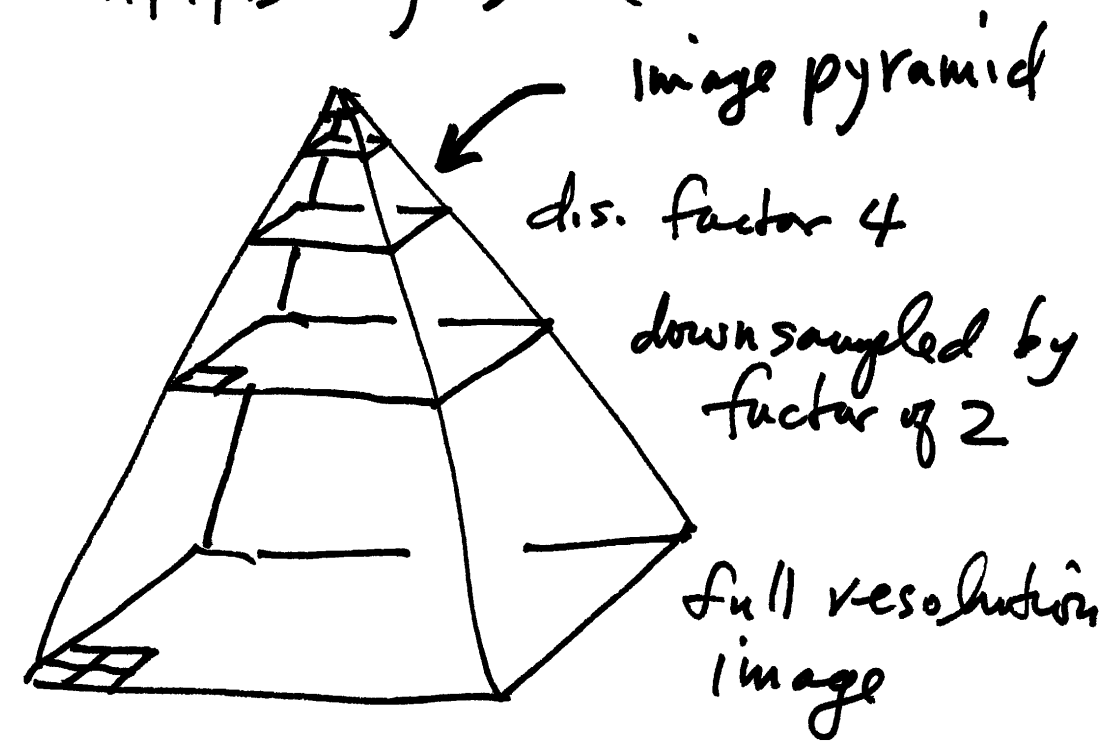 image pyramid
d.s. factor 4
downsampled by
factor of 2
full resolution
image